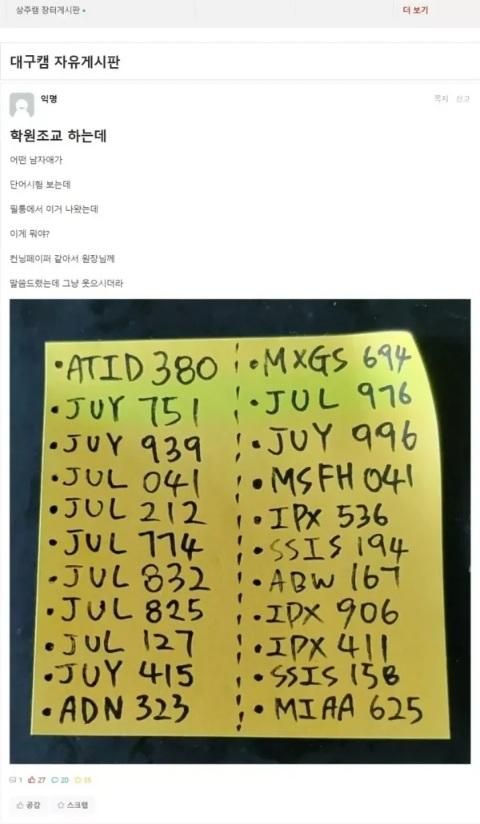 상주캠 장터게시판
더 보기
대구캠 자유게시판
익명
쪽지 신고
학원조교 하는데
어떤 남자애가
단어시험 보는데
필통에서 이거 나왔는데
이게 뭐야?
컨닝페이퍼 같아서 원장님께
말씀드렸는데 그냥 웃으시더라
•ATID 380
•JUY 751
•JUY 939
•JUL 041
•JUL 212
•JUL 774
•JUL 832
•JUL 825
•JUL 127
•JUY 415
•ADN 323
•MXGS 694
•JUL 976
•JUY 996
•MSFH 041
•IPX 536
•SSIS 194
•ABW 167
•IPX 906
•IPX 411
•SSIS 158
•MIAA 625
1 27 20 35
공감 스크랩